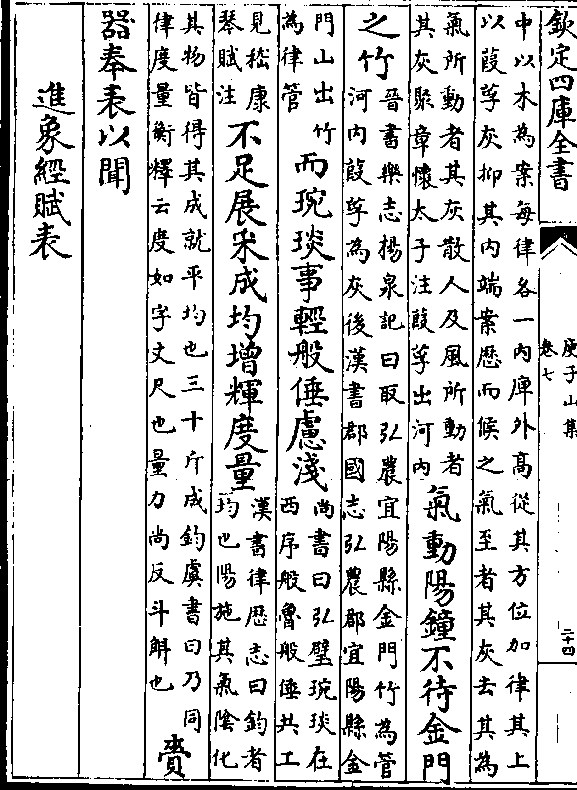 欽定四庫全書
庾子山集
卷七
二十四
中以木為案每律各一內庳外高從其方位加律其上
以葭莩灰抑其內端案歷而候之氣至者其灰去其為
氣所動者其灰散人及風所動者
其灰聚章懷太子注葭莩出河內
氣動陽鐘不待金門
之竹
晉書樂志揚泉記曰取弘農宜陽縣金門竹為管
河內葭莩為灰後漢書郡國志弘農郡宜陽縣金
門山出竹
為律管
而琬琰事輕般倕慮淺
尚書曰弘璧琬琰在
西序般魯般倕共工
見嵇康
琴賦注
不足展采成均增輝度量
漢書律歴志曰鈞者
均也陽施其氣陰化
其物皆得其成就平均也三十斤成鈞虞書曰乃同
律度量衡釋云度如字丈尺也量力尚反斗斛也
賫
器奉表以聞
進象經賦表